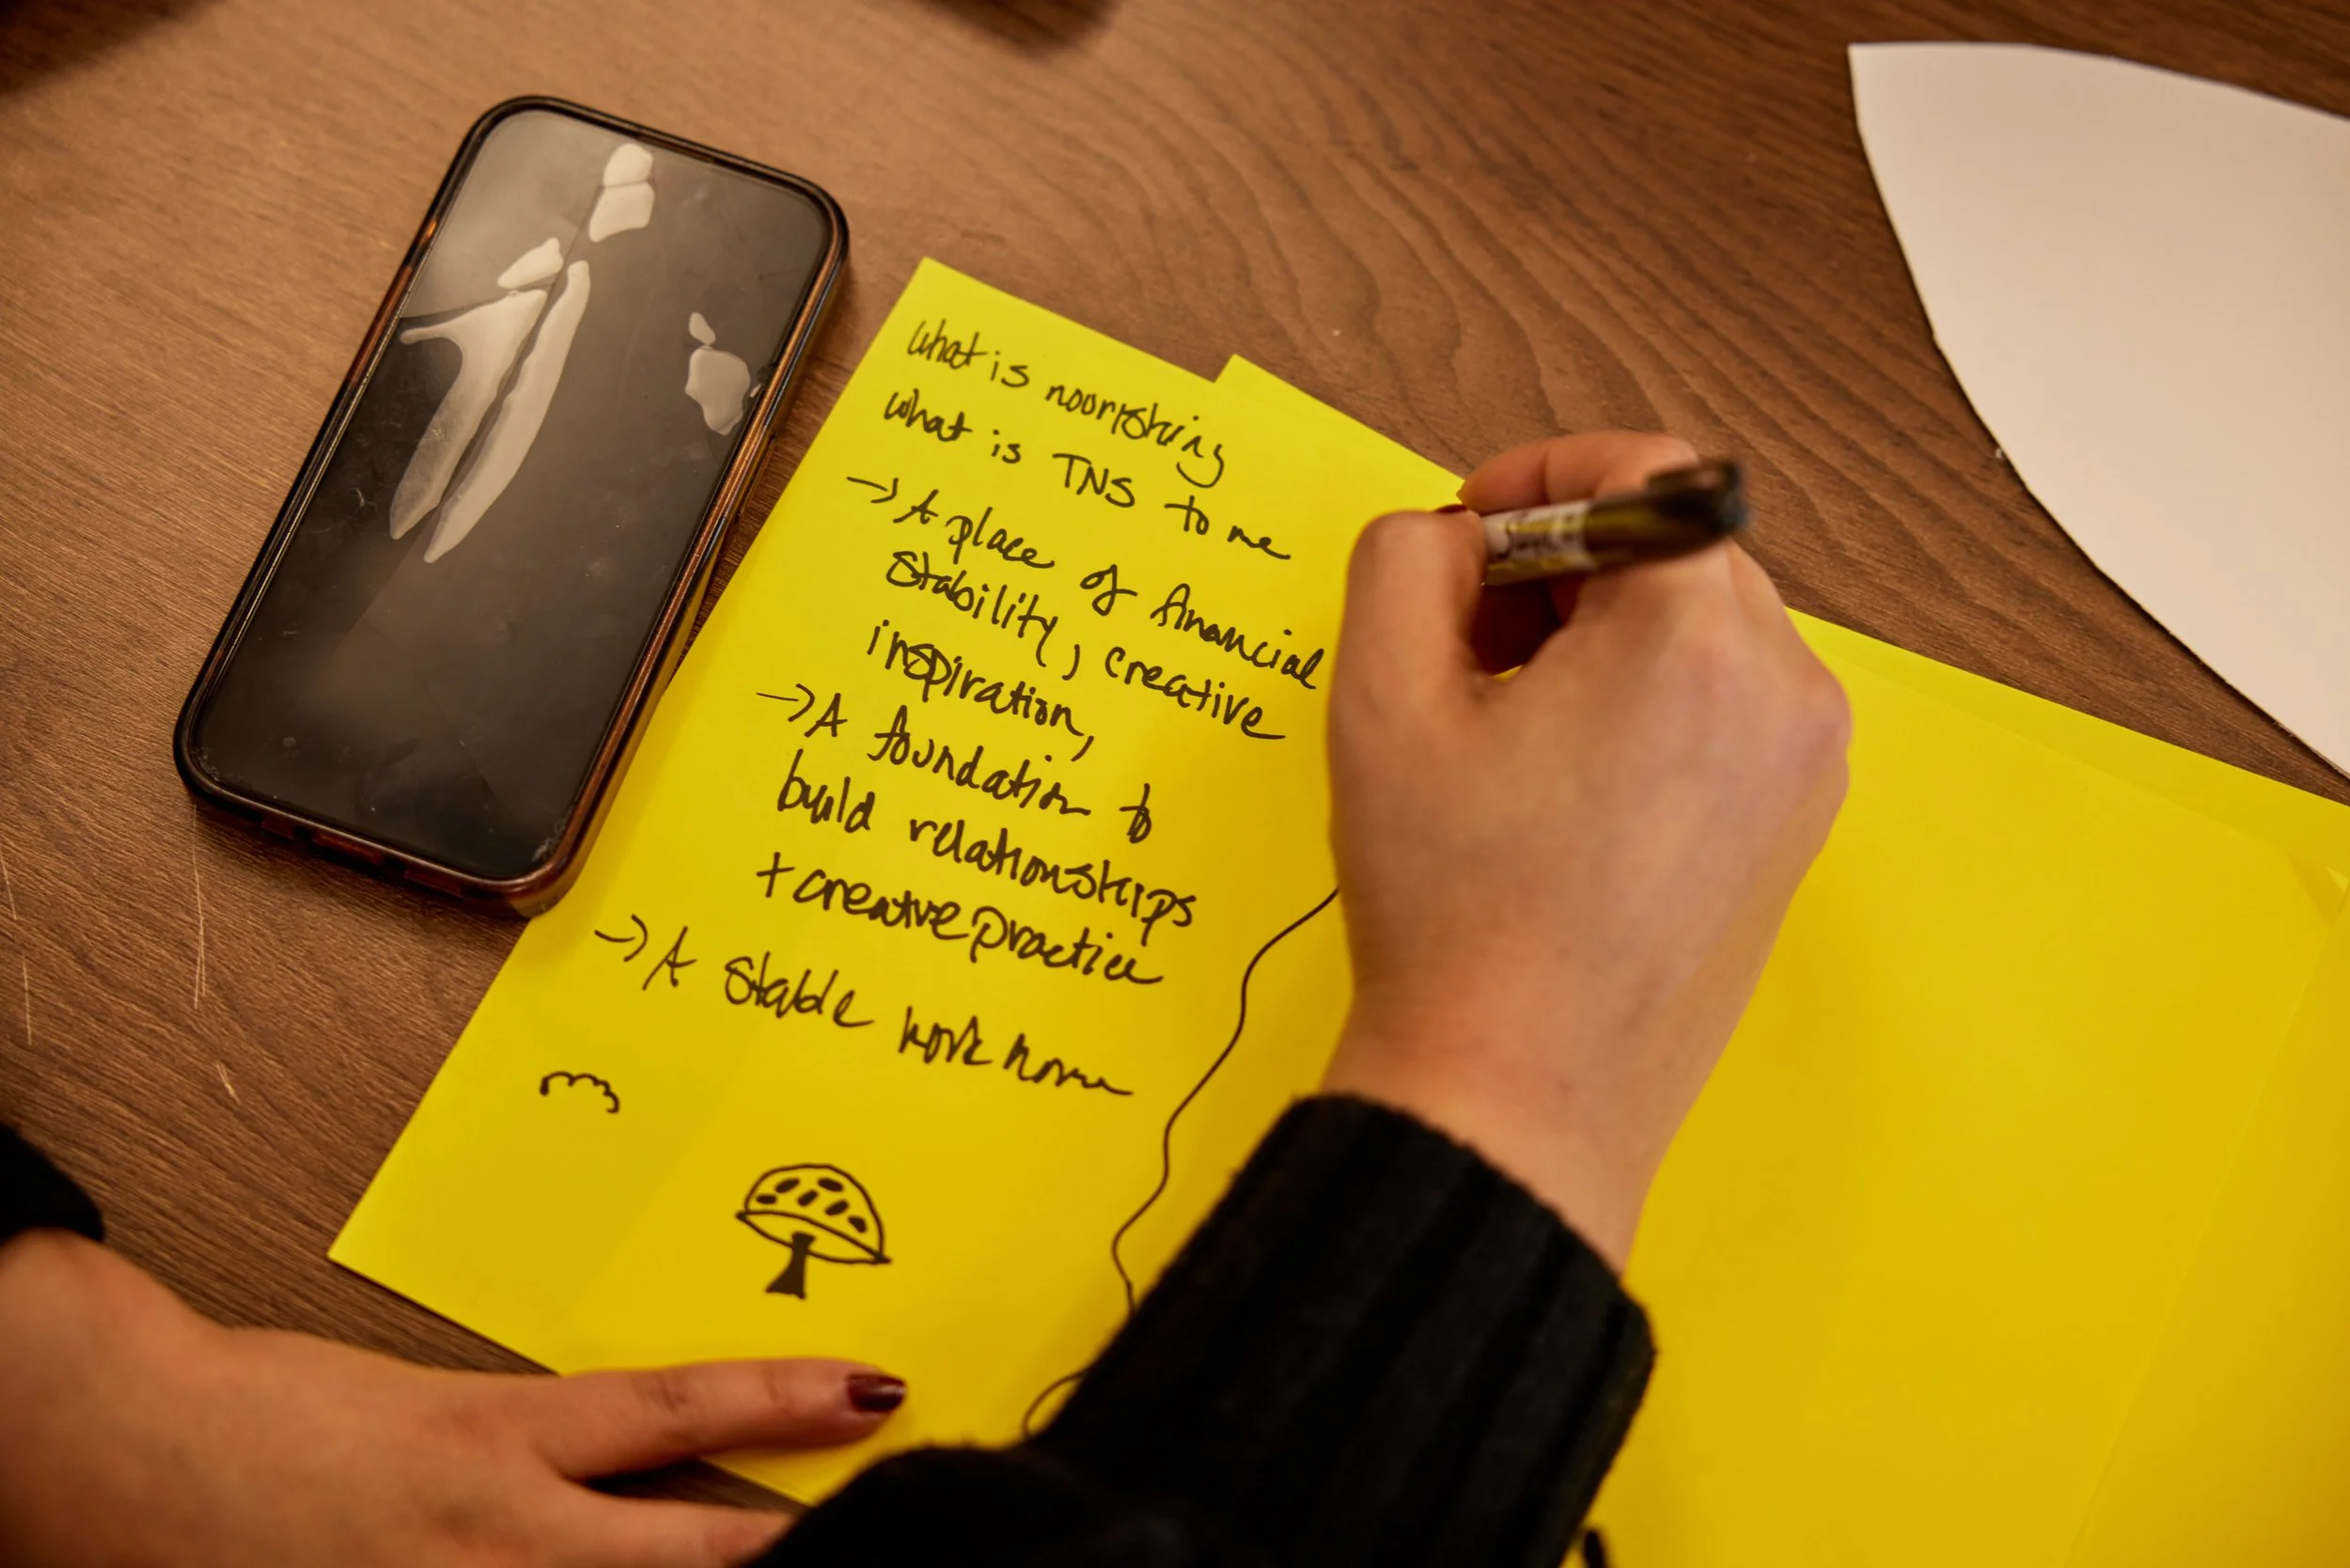 what is nourishing
what is TNS to me
→ A place of financial
stability, creative
inspiration,
→ A foundation to
build relationships
+ creative practice
→ A stable work home